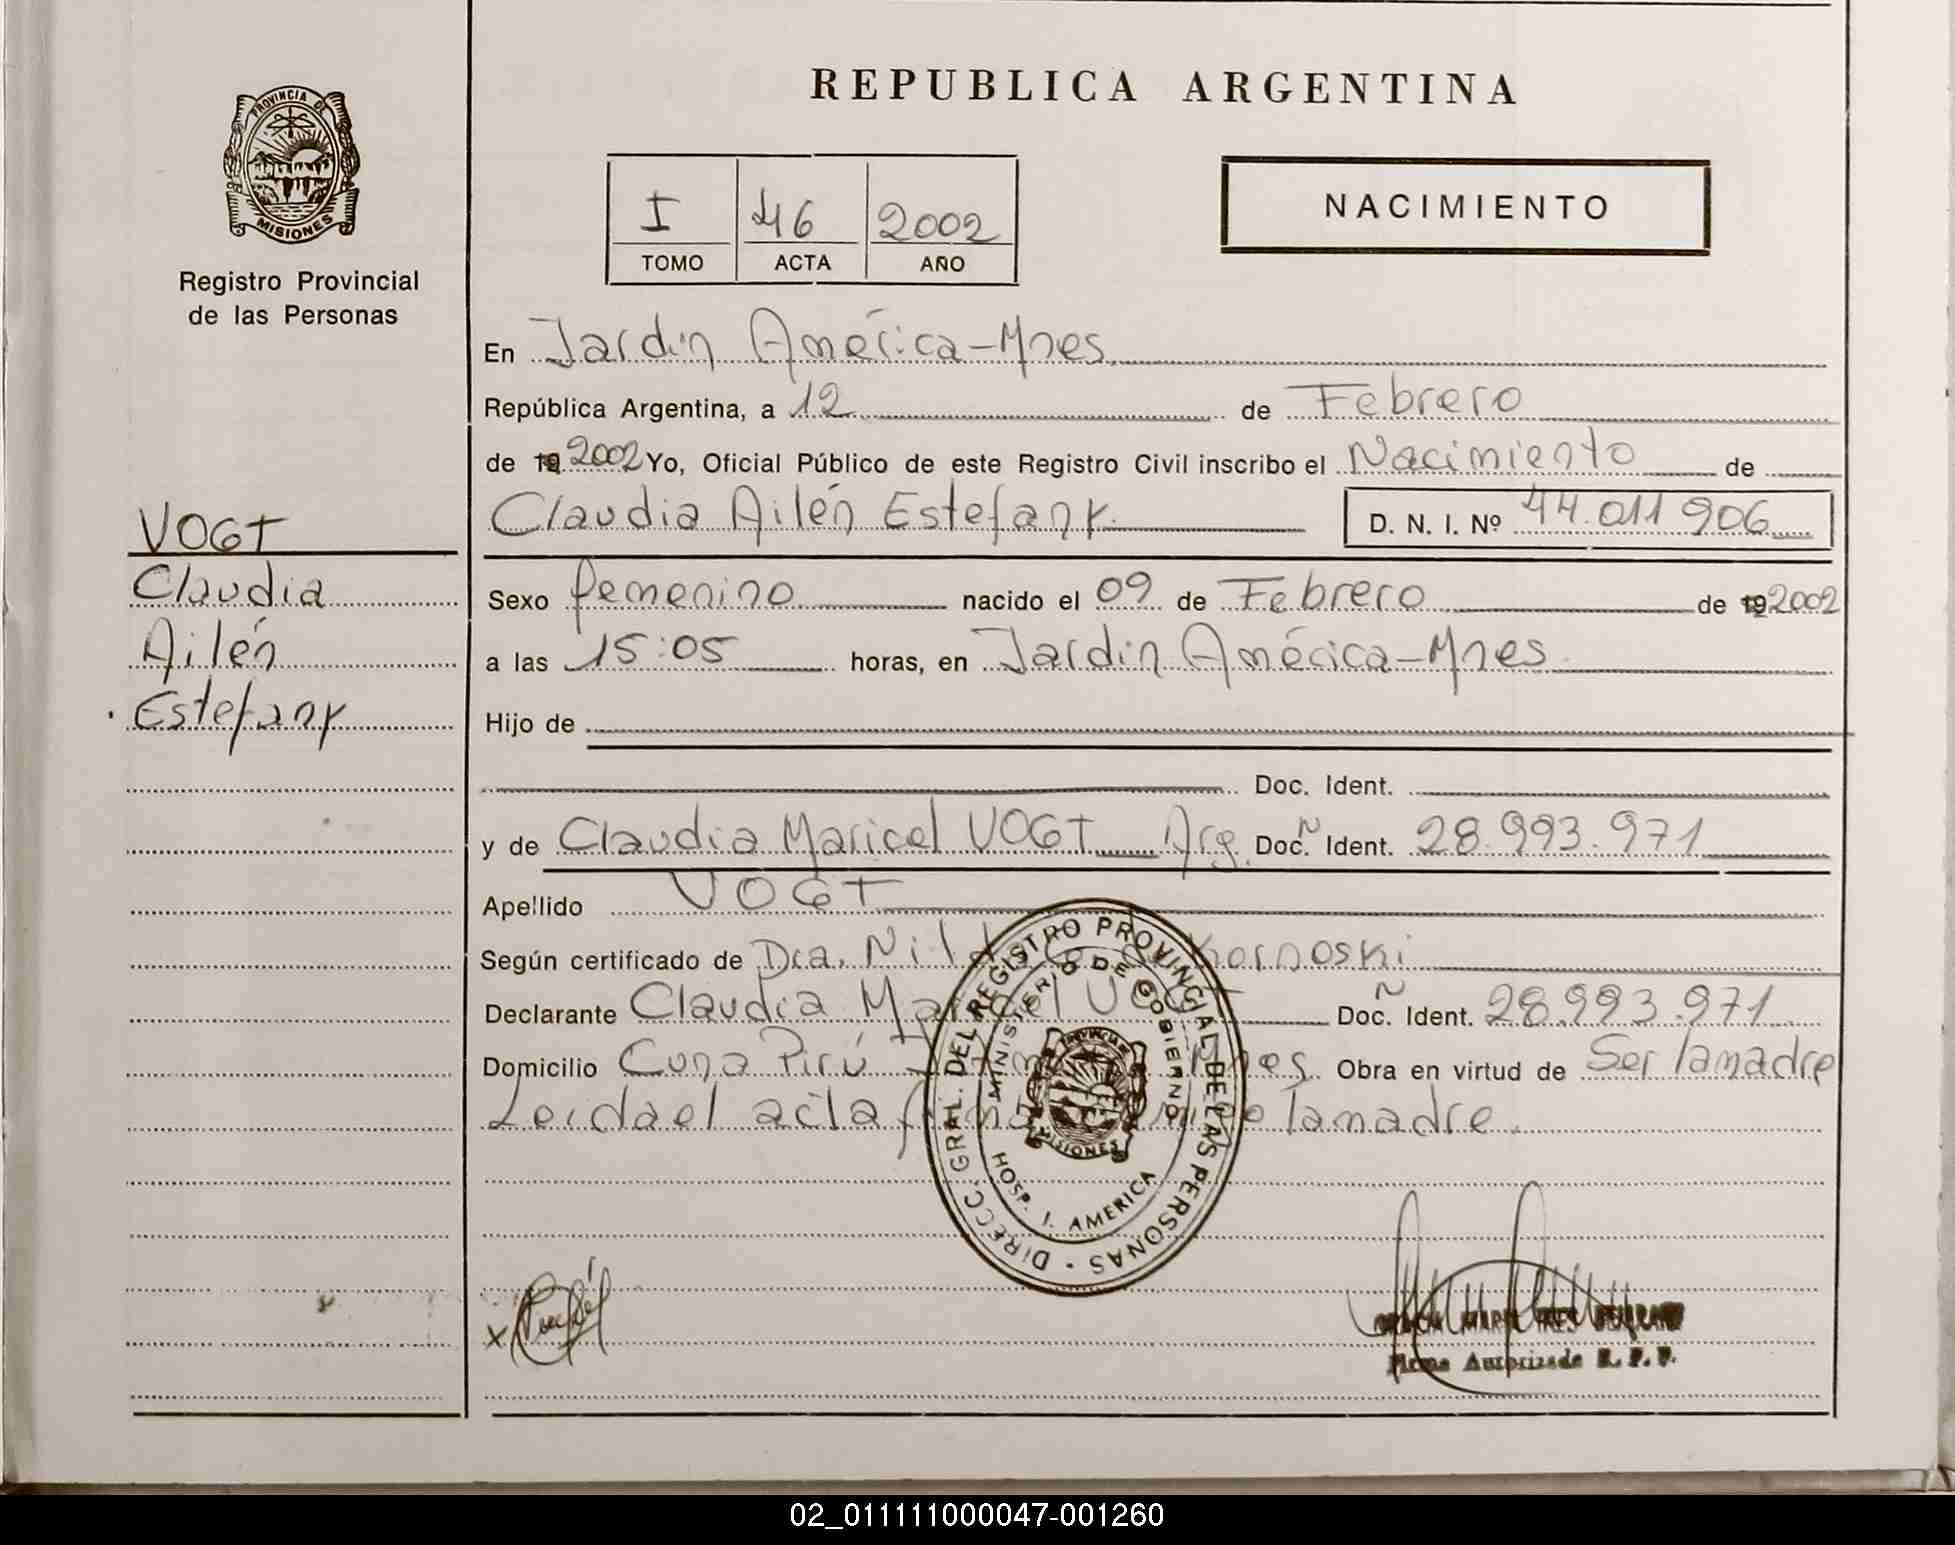 REPUBLICA ARGENTINA
PROVINCIA DE
MISIONES
Registro Provincial
de las Personas
I 46 2002
TOMO ACTA AÑO
NACIMIENTO
En Jardin América-Mnes.
República Argentina, a 12 de Febrero
de 19 2002 Yo, Oficial Público de este Registro Civil inscribo el Nacimiento de
Claudia Ailén Estefany D. N. I. Nº 44.011 906
VOGT
Claudia
Ailén
Estefany
Sexo femenino nacido el 09 de Febrero de 19 2002
a las 15:05 horas, en Jardin América-Mnes.
Hijo de
Doc. Ident.
y de Claudia Maricel VOGT Arg. Doc. N Ident. 28.993.971
Apellido VOGT
Según certificado de Dra. Kornoski
Declarante Claudia Maricel VOGT Doc. N Ident. 28.993.971
Domicilio Cuna Pirú Mnes. Obra en virtud de Ser la madre
Leida el acta la madre.
DIRECC. GRAL. DEL REGISTRO PROVINCIAL DE LAS PERSONAS
MINISTERIO DE GOBIERNO
MISIONES
HOSP. J. AMERICA
x
Firma Autorizada R. P. P.
02_011111000047-001260